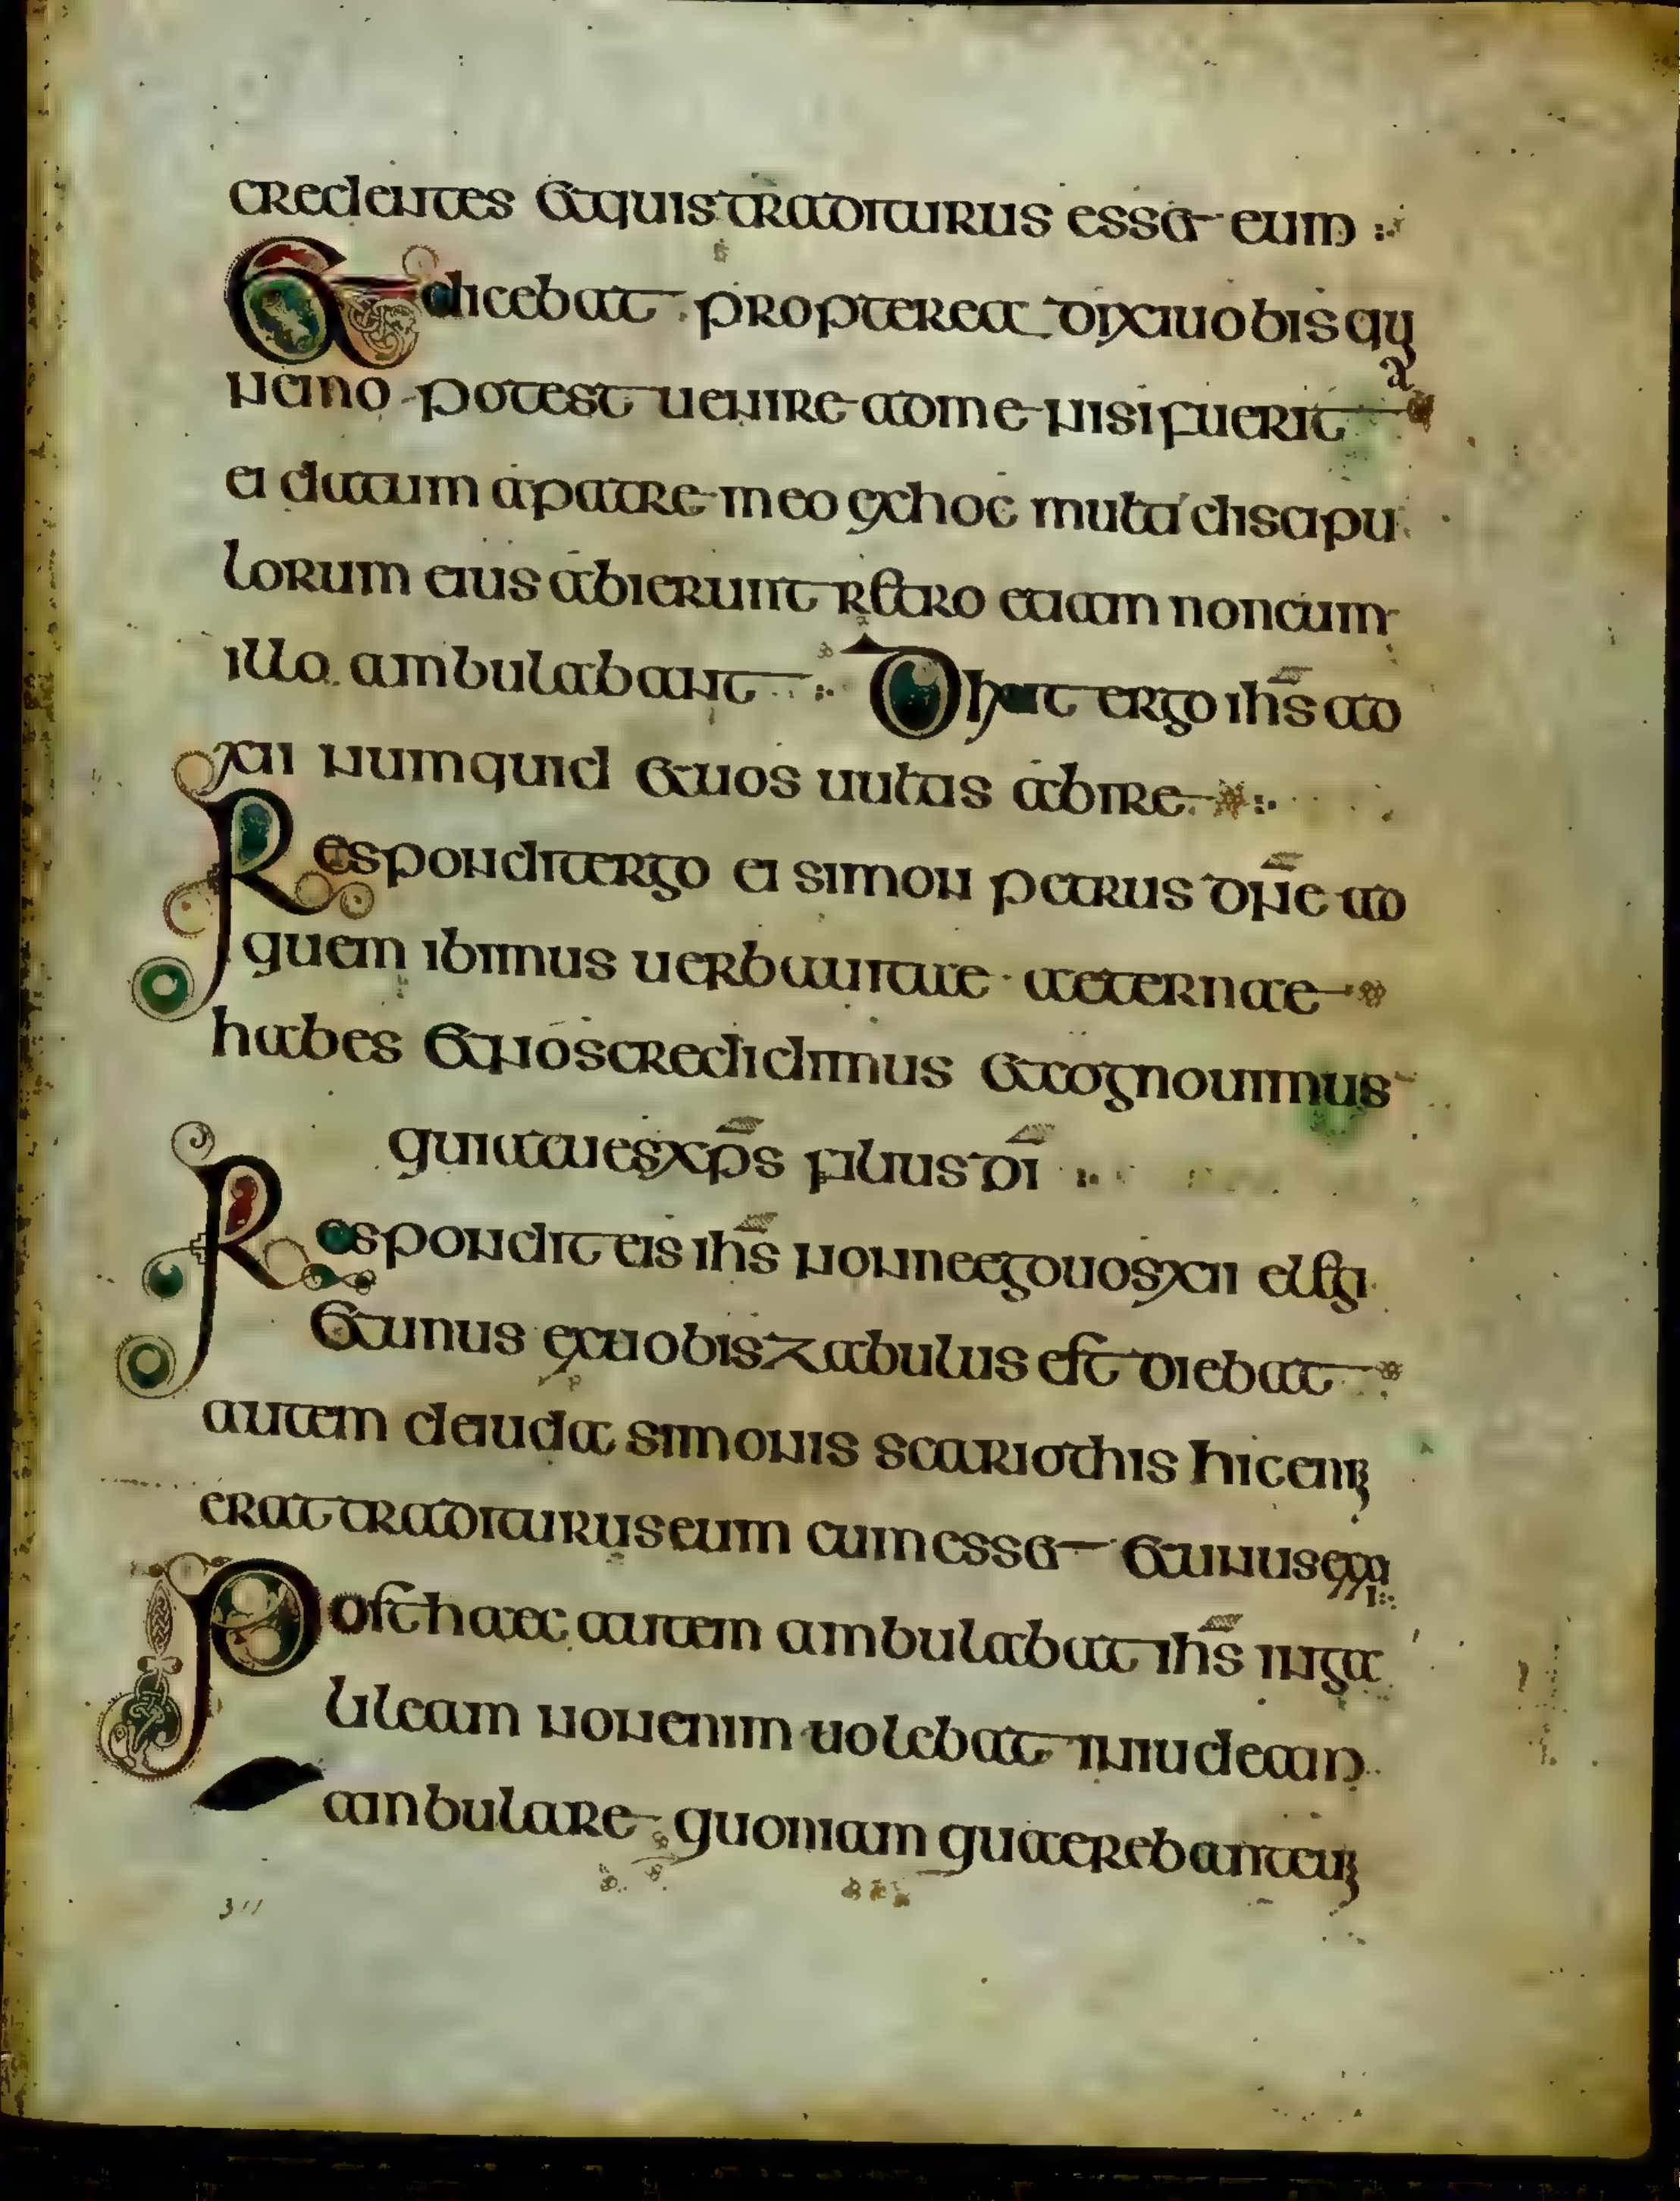 credentes et quis traditurus esset eum
Et dicebat propterea dixi uobis qu
ia
nemo potest uenire ad me nisi fuerit
ei datum a patre meo ex hoc multi discipu
lorum eius abierunt retro et iam non cum
illo ambulabant Dixit ergo ihs ad
xii numquid et uos uultis abire
Respondit ergo ei simon petrus dne ad
quem ibimus uerba uitae aeternae
habes et nos credidimus et cognouimus
quia tu es xps filius di
Respondit eis ihs nonne ego uos xii elegi
et unus ex uobis zabulus est diebat
autem de iuda simonis scariothis hic enim
erat traditurus eum cum esset et unus
Post haec autem ambulabat ihs in ga
lileam non enim uolebat in iudeam
ambulare quoniam quaerebant eum
311